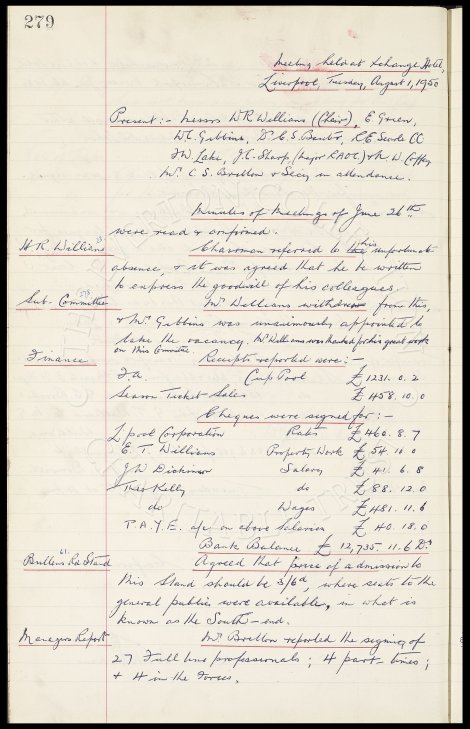 279
Meeting held at Exchange Hotel,
Liverpool, Tuesday, August 1, 1950
Present :- Messrs W R Williams (Chair), E Green,
W C Gibbins, Dr C S Baxter, R E Searle CC
F W Lake, J C Sharp, (Major RAOC) & N W Coffey
Mr. C S Britton & Secy in attendance.
Minutes of Meetings of June 26th
were read & confirmed.
H R. Williams
Chairman referred to his unfortunate
absence, & it was agreed that he be written
to express the goodwill of his colleagues.
Sub. Committee
278
Mr Williams withdrew from this,
& Mr. Gibbins was unanimously appointed to
take the vacancy. Mr Williams was thanked for his great work
on this Committee.
Finance
Receipts reported were :-
F.A. Cup Pool £ 1231. 0. 2
Season Ticket Sales £ 1458. 10. 0
Cheques were signed for :-
L'pool Corporation Rates £ 460. 8. 7
E. T. Williams Property Work £ 54. 16. 0
J W Dickinson Salary £ 41. 6. 8
Theo Kelly do £ 88. 12. 0
do Wages £ 481. 11. 6
P.A.Y.E. a/c on above Salaries £ 40. 18. 0
Bank Balance £ 12,735. 11. 6 Dr
Bullens Rd Stand
61
Agreed that price of admission to
this Stand should be 3/6d, where seats to the
general public were available, in what is
known as the South-end.
Managers Report
Mr Britton reported the signing of
27 Full time professionals ; 4 part-times ;
+ 4 in the Forces.